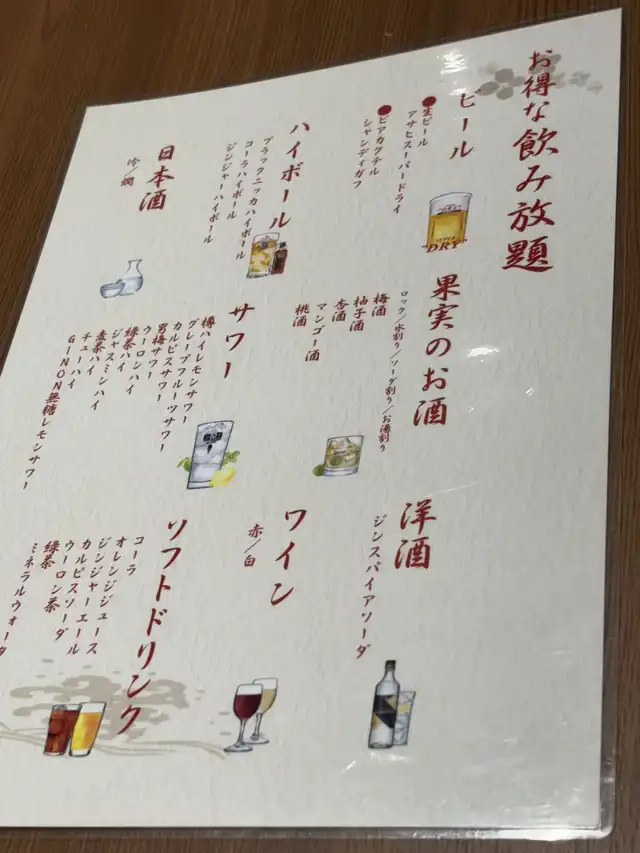 お得な飲み放題
ビール
●生ビール
アサヒスーパードライ
●ビアカクテル
シャンディガフ
SUPER
DRY
ハイボール
ブラックニッカハイボール
コーラハイボール
ジンジャーハイボール
日本酒
冷/燗
果実のお酒
ロック/水割り/ソーダ割り/お湯割り
梅酒
柚子酒
杏酒
マンゴー酒
桃酒
サワー
樽ハイレモンサワー
グレープフルーツサワー
カルピスサワー
男梅サワー
ウーロンハイ
緑茶ハイ
ジャスミンハイ
麦茶ハイ
チューハイ
GINON無糖レモンサワー
洋酒
ジンスパイアソーダ
ワイン
赤/白
ソフトドリンク
コーラ
オレンジジュース
ジンジャーエール
カルピスソーダ
ウーロン茶
緑茶
ミネラルウォータ